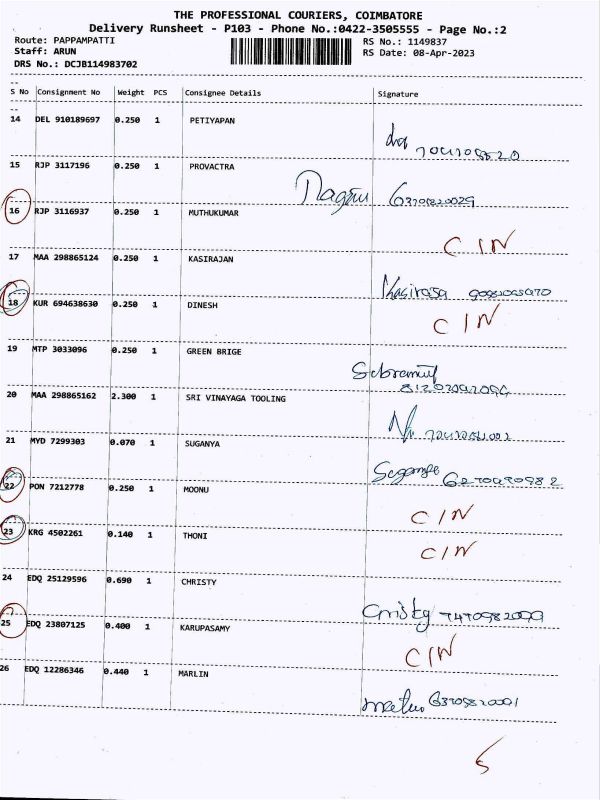 THE PROFESSIONAL COURIERS, COIMBATORE
Delivery Runsheet - P103 - Phone No.:0422-3505555 - Page No.:2
Route: PAPPAMPATTI RS No.: 1149837
Staff: ARUN RS Date: 08-Apr-2023
DRS No.: DCJB114983702
S No Consignment No Weight PCS Consignee Details Signature
14 DEL 910189697 0.250 1 PETIYAPAN
15 RJP 3117196 0.250 1 PROVACTRA
16 RJP 3116937 0.250 1 MUTHUKUMAR
C/N
17 MAA 298865124 0.250 1 KASIRAJAN
Kasirasa
18 KUR 694638630 0.250 1 DINESH
C/N
19 MTP 3033096 0.250 1 GREEN BRIGE
20 MAA 298865162 2.300 1 SRI VINAYAGA TOOLING
21 MYD 7299303 0.070 1 SUGANYA
22 PON 7212778 0.250 1 MOONU
C/N
23 KRG 4502261 0.140 1 THONI
C/N
24 EDQ 25129596 0.690 1 CHRISTY
25 EDQ 23807125 0.400 1 KARUPASAMY
C/N
26 EDQ 12286346 0.440 1 MARLIN
5